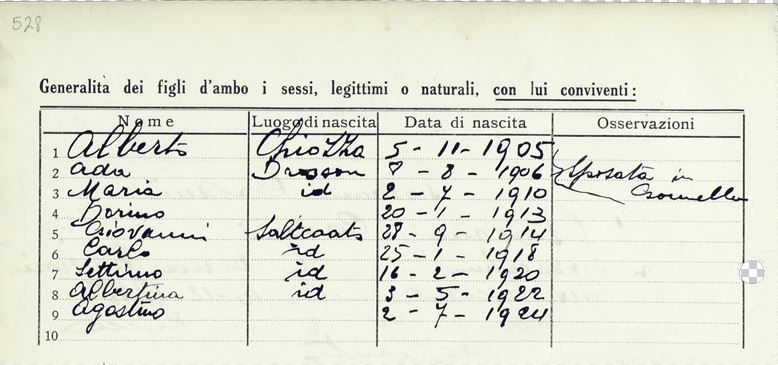 528
Generalità dei figli d'ambo i sessi, legittimi o naturali, con lui conviventi:
Nome Luogo di nascita Data di nascita Osservazioni
1 Alberto Chiozza 5 - 11 - 1905
2 Ada - 8 - 1906 Sposata in
3 Maria id 2 - 7 - 1910
4 Dorino 20 - 1 - 1913
5 Giovanni Saltcoats 27 - 9 - 1914
6 Carlo id 25 - 1 - 1918
7 Settimo id 16 - 2 - 1920
8 Albertina id 3 - 5 - 1922
9 Agostino 2 - 7 - 1924
10